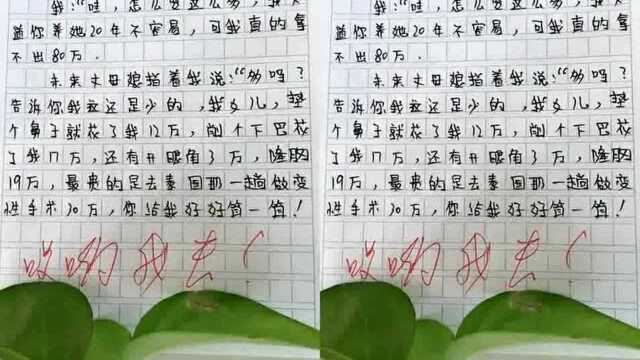 我:"哇,怎么要这么多,我
道你养她20年不容易,可我真的拿
不出80万.
未来丈母娘指着我说:"多吗?
告诉你我这还是少的,我女儿,垫
个鼻子就花了我12万,削个下巴花
了我17万,还有开眼角3万,隆胸
19万,最贵的是去泰国那一趟做变
性手术30万,你给我好好算一算!
哎哟我去!
我:"哇,怎么要这么多,我
道你养她20年不容易,可我真的拿
不出80万.
未来丈母娘指着我说:"多吗?
告诉你我这还是少的,我女儿,垫
个鼻子就花了我12万,削个下巴花
了我17万,还有开眼角3万,隆胸
19万,最贵的是去泰国那一趟做变
性手术30万,你给我好好算一算!
哎哟我去!